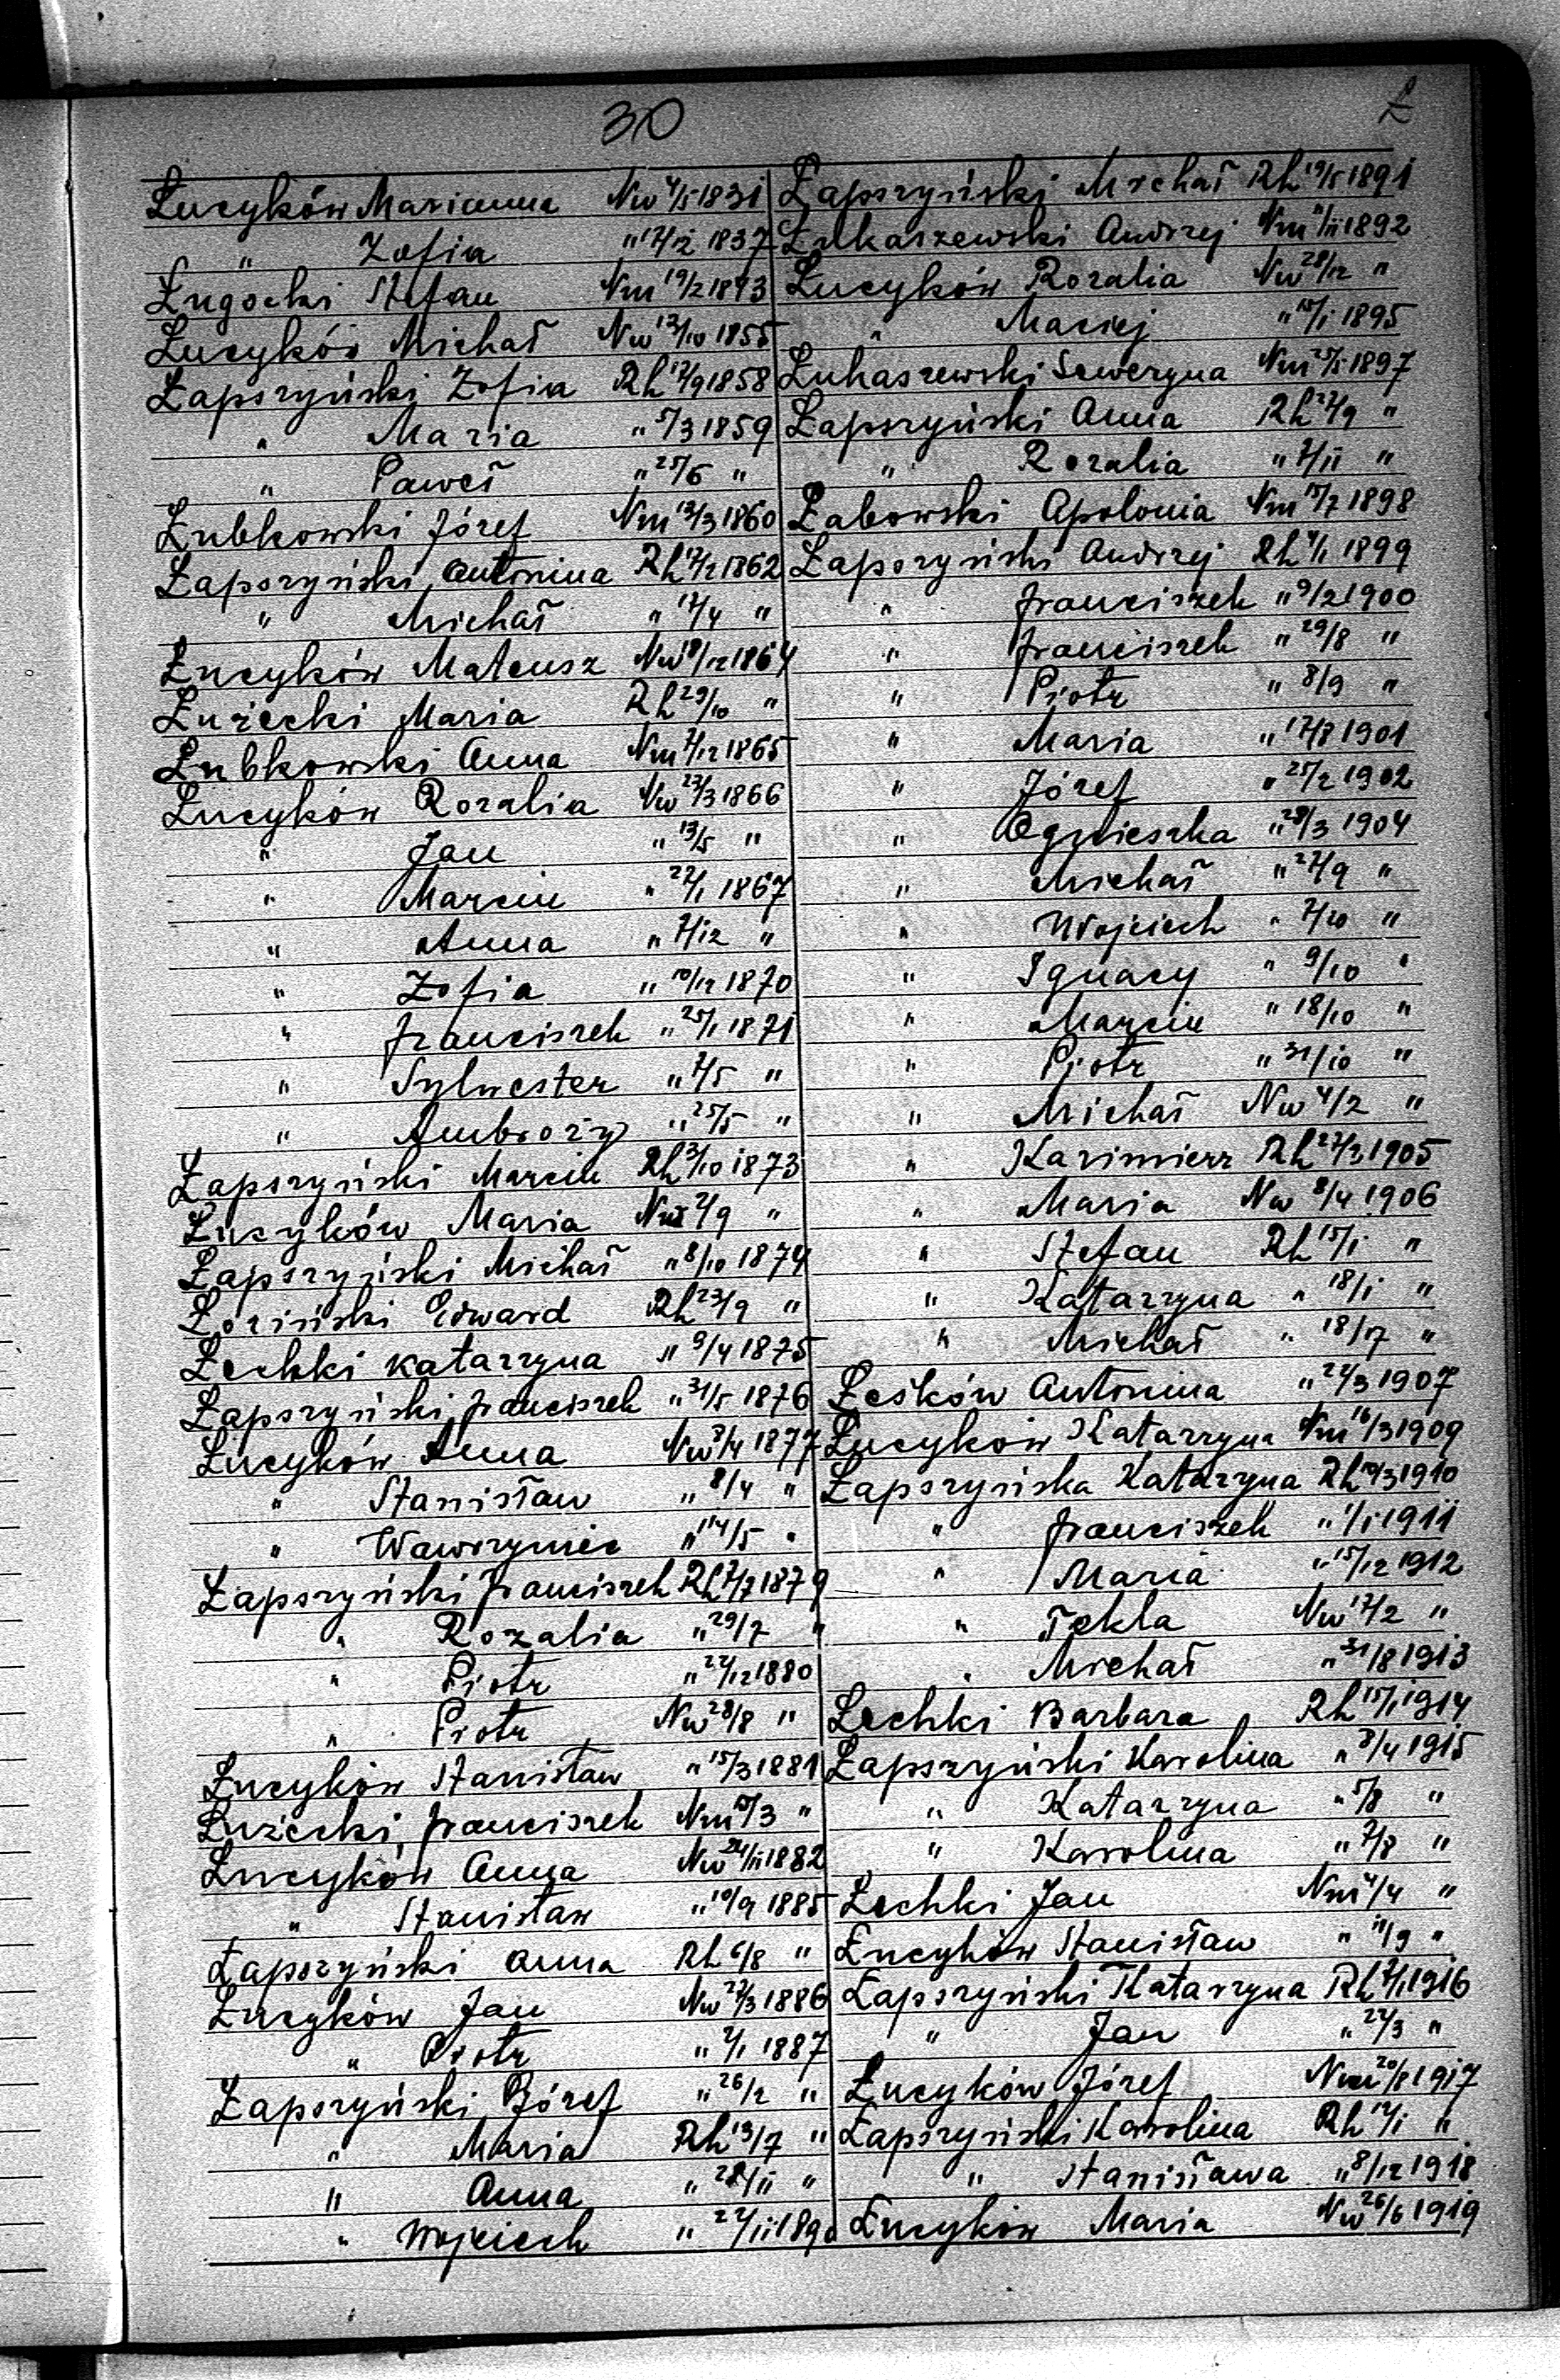 30
Ł
Łucyków Marianna Nw 4/5 1831
" Zofia " 17/12 1837
Ługocki Stefan Nm 19/2 1843
Łucyków Michał Nw 12/10 1855
Łapszyński Zofia Rh 12/9 1858
" Maria " 5/3 1859
" Paweł " 25/6 "
Łubkowski Józef Nm 13/3 1860
Łapszyński Antonina Rh 12/2 1862
" Michał " 17/4 "
Łucyków Mateusz Nw 18/12 1864
Łużecki Maria Rh 29/10 "
Łubkowski Anna Nm 7/12 1865
Łucyków Rozalia Nw 23/3 1866
" Jan " 13/5 "
" Marcin " 22/1 1867
" Anna " 7/12 "
" Zofia " 10/12 1870
" Franciszek " 25/1 1871
" Sylwester " 7/5 "
" Ambroży " 25/5 "
Łapszyński Marcin Rh 3/10 1873
Łucyków Maria Nw 2/9 "
Łapszyński Michał " 8/10 1874
Łoziński Edward Rh 23/9 "
Łechki Katarzyna " 9/4 1875
Łapszyński Franciszek " 31/5 1876
Łucyków Anna Nw 8/4 1877
" Stanisław " 8/4 "
" Wawrzyniec " 14/5 "
Łapszyński Franciszek Rh 7/7 1879
" Rozalia " 29/7 "
" Piotr " 22/12 1880
" Piotr Nw 28/8 "
Łucyków Stanisław " 15/3 1881
Łużecki Franciszek Nm 10/3 "
Łucyków Anna Nw 24/11 1882
" Stanisław " 10/9 1885
Łapszyński Anna Rh 6/8 "
Łucyków Jan Nw 27/3 1886
" Piotr " 2/1 1887
Łapszyński Józef " 26/2 "
" Maria Rh 13/7 "
" Anna " 28/11 "
" Wojciech " 24/11 1890
Łapszyński Michał Rh 19/5 1891
Łukaszewski Andrzej Nm 11/11 1892
Łucyków Rozalia Nw 28/12 "
" Maciej " 10/1 1895
Łukaszewski Seweryna Nm 25/5 1897
Łapszyński Anna Rh 27/9 "
" Rozalia " 7/11 "
Łabowski Apolonia Nm 15/7 1898
Łapszyński Andrzej Rh 4/1 1899
" Franciszek " 9/2 1900
" Franciszek " 29/8 "
" Piotr " 8/9 "
" Maria " 17/8 1901
" Józef " 25/2 1902
" Agnieszka " 28/3 1904
" Michał " 27/9 "
" Wojciech " 7/10 "
" Ignacy " 9/10 "
" Marcin " 18/10 "
" Piotr " 31/10 "
" Michał Nw 4/2 "
" Kazimierz Rh 27/3 1905
" Maria Nw 8/4 1906
" Stefan Rh 15/1 "
" Katarzyna " 18/1 "
" Michał " 18/17 "
Łeśków Antonina " 24/3 1907
Łucyków Katarzyna Nm 16/3 1909
Łapszyńska Katarzyna Rh 10/3 1910
" Franciszek " 1/1 1911
" Maria " 15/12 1912
" Tekla Nw 17/2 "
" Michał " 31/8 1913
Łechki Barbara Rh 15/1 1914
Łapszyński Karolina " 8/4 1915
" Katarzyna " 5/8 "
" Karolina " 7/8 "
Łechki Jan Nm 4/4 "
Łucyków Stanisław " 11/9 "
Łapszyński Katarzyna Rh 7/1 1916
" Jan " 24/3 "
Łucyków Józef Nm 20/8 1917
Łapszyński Karolina Rh 14/1 "
" Stanisława " 8/12 1918
Łucyków Maria Nw 26/6 1919